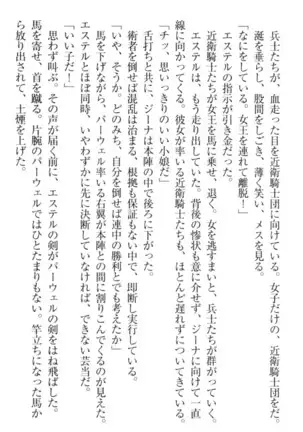 兵士たちが、血走った目を近衛騎士団に向けている。女子だけの、近衛騎士団をだ。
涎を垂らし、股間をしごき、薄く笑い、メスを見る。
「なにをしている。女王を連れて離脱！」
エステルの指示が引き金だった。
近衛騎士たちが女王を馬に乗せ、退く。女を逃すまいと、兵士たちが群がっていく。
エステルは、もう走り出していた。背後の惨状も意に介せず、ジーナに向けて一直
線に向かってくる。彼女が率いる近衛騎士たちも、ほとんど遅れずについてきている。
「チッ、思いっきりのいい小娘だ」
舌打ちと共に、ジーナは本陣の中で後ろに下がった。
術者を倒せば混乱は治まる、根拠も保証もない中で、即断し実行している。
「いや、そうか。どのみち、自分を倒せば連中の勝利とでも考えたか」
馬を下げながら、パーウェル率いる右翼が本陣との間に割りこんでくるのが見えた。
エステルとほぼ同時、いやわずかに先に決断していなければ、できない芸当だ。
「いい子だ！」
思わず叫ぶ。その声が届く前に、エステルの剣がパーウェルの剣をはね飛ばした。
馬を寄せ、首を蹴る。片腕のパーウェルではひとたまりもない。竿立ちになった馬か
ら放り出されて、土煙を上げた。